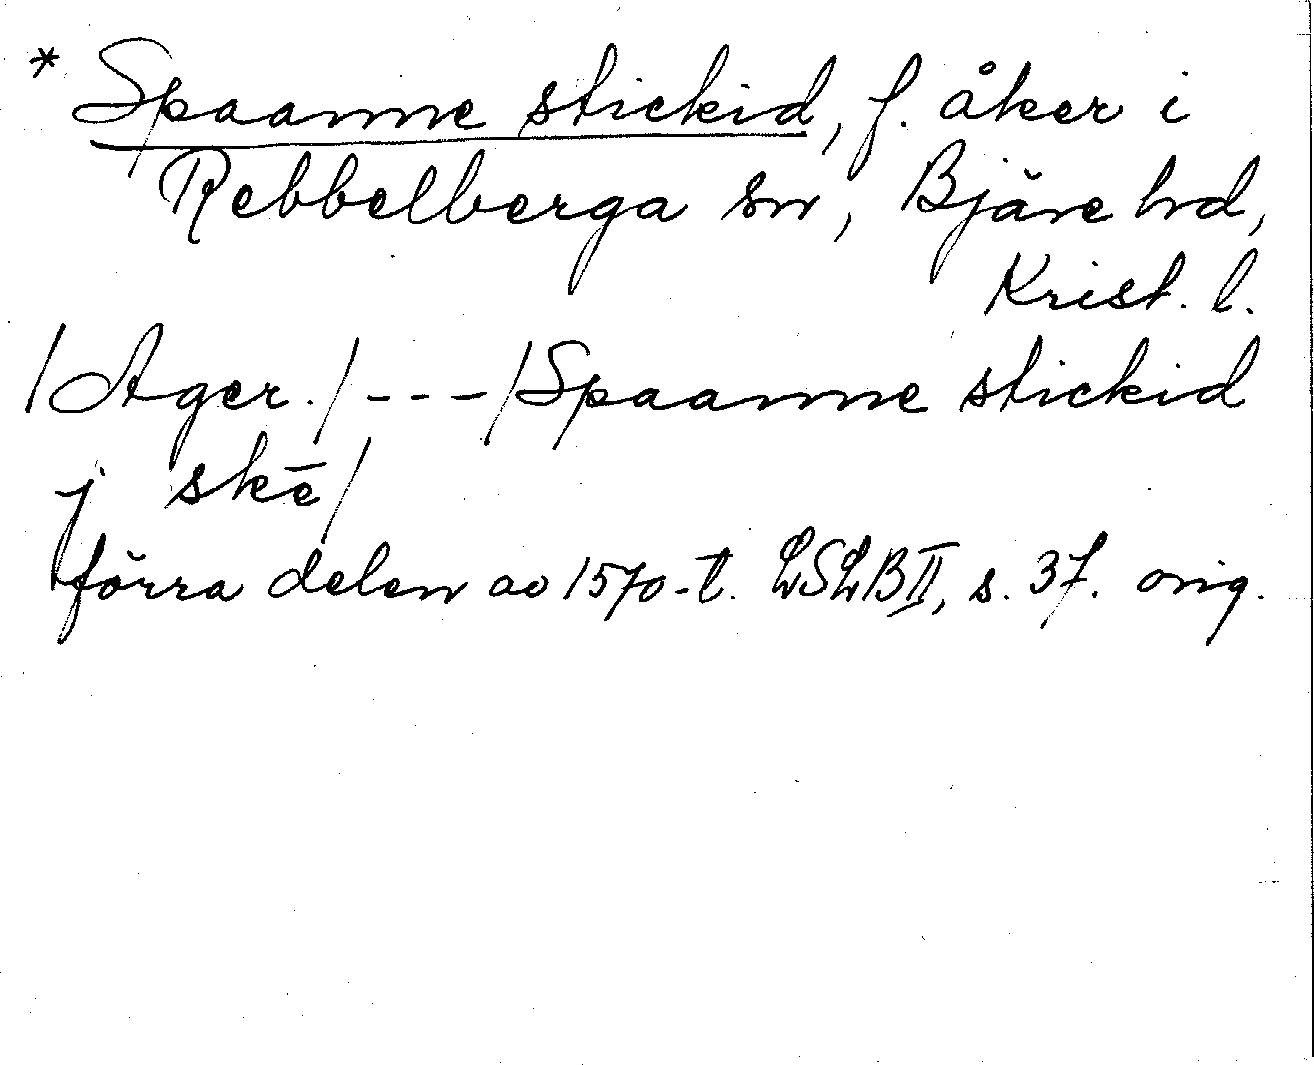 * Spaanne stickid, f. åker i
Rebbelberga sn, Bjäre hd,
Krist. l.
/Ager./---/Spaanne stickid
j skē/
förra delen av 1570-t. LSLB II, s. 37. orig.